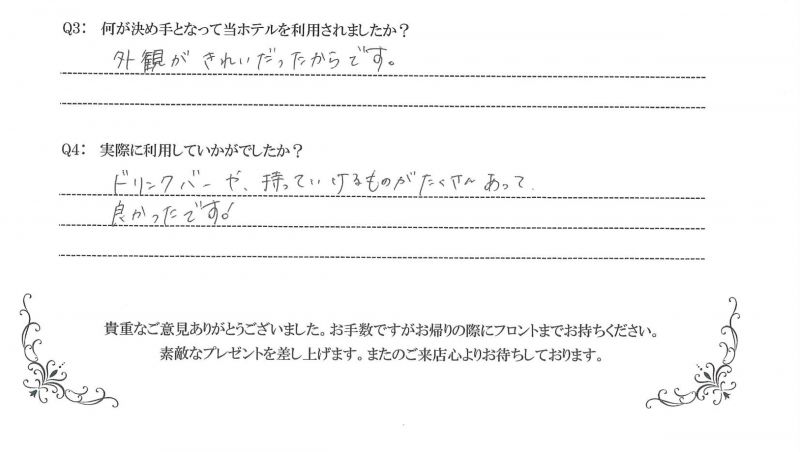 Q3: 何が決め手となって当ホテルを利用されましたか？
外観がきれいだったからです。
Q4: 実際に利用していかがでしたか？
ドリンクバーや、持っていけるものがたくさんあって、
良かったです!
貴重なご意見ありがとうございました。お手数ですがお帰りの際にフロントまでお持ちください。
素敵なプレゼントを差し上げます。またのご来店心よりお待ちしております。